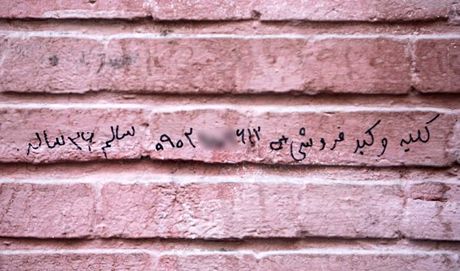 کلیه و کبد فروشی ۰۹۰۲ ۶۱۳ سالم ۳۶ ساله